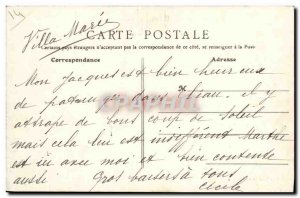 Villa Marie
CARTE POSTALE
Certains pays étrangers n'acceptent pas la correspondance de ce côté, se renseigner à la Poste
Correspondance
Adresse
Mon Jacques est bien heureux
de patauger dans l'eau. il y
attrape de bons coup de soleil
mais cela lui est indifférent Marthe
est ici avec moi et bien contente
aussi Gros baisers à tous
Cécile